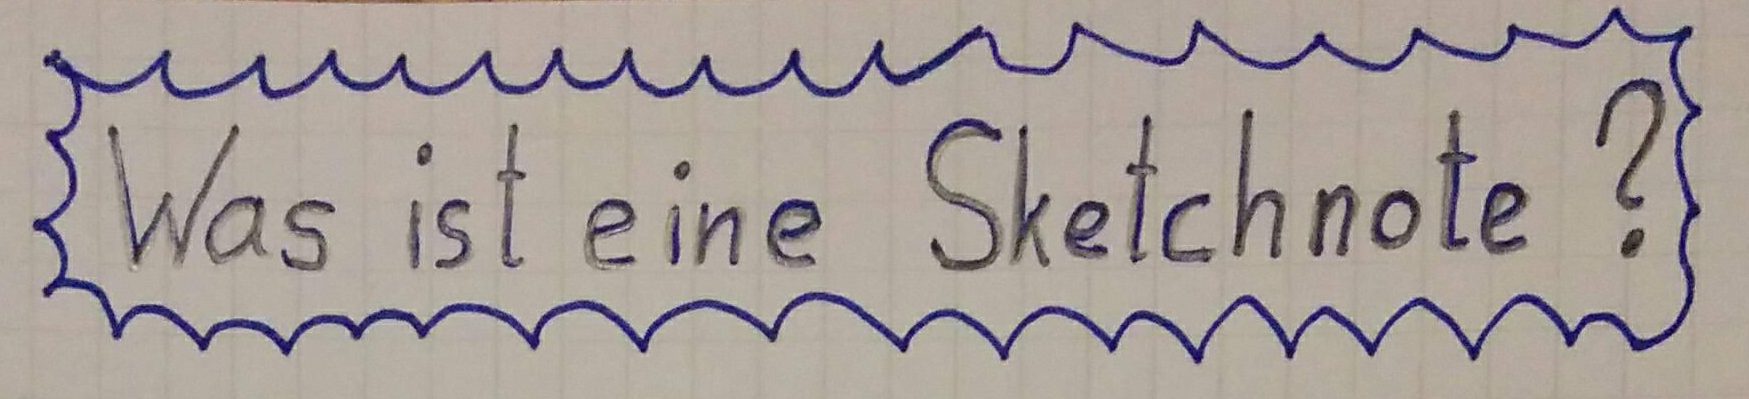 Was ist eine Sketchnote ?